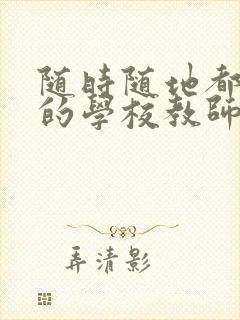 随時随地都
的學校教師
弄清影